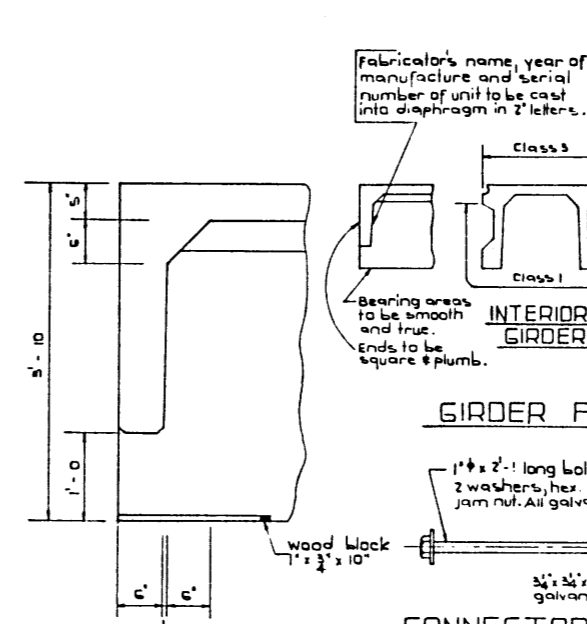 Fabricator's name, year of
manufacture and serial
number of unit to be cast
into diaphragm in 2" letters.
Class 3
Class 1
5"
6"
3'-10
1'-0
6"
6"
Bearing areas
to be smooth
and true.
Ends to be
square & plumb.
INTERIOR
GIRDER
GIRDER F
1"ϕ x 2'-1 long bol
2 washers, hex.
jam nut. All galv
wood block
1" x 3/4" x 10"
galvan
CONNECTOR